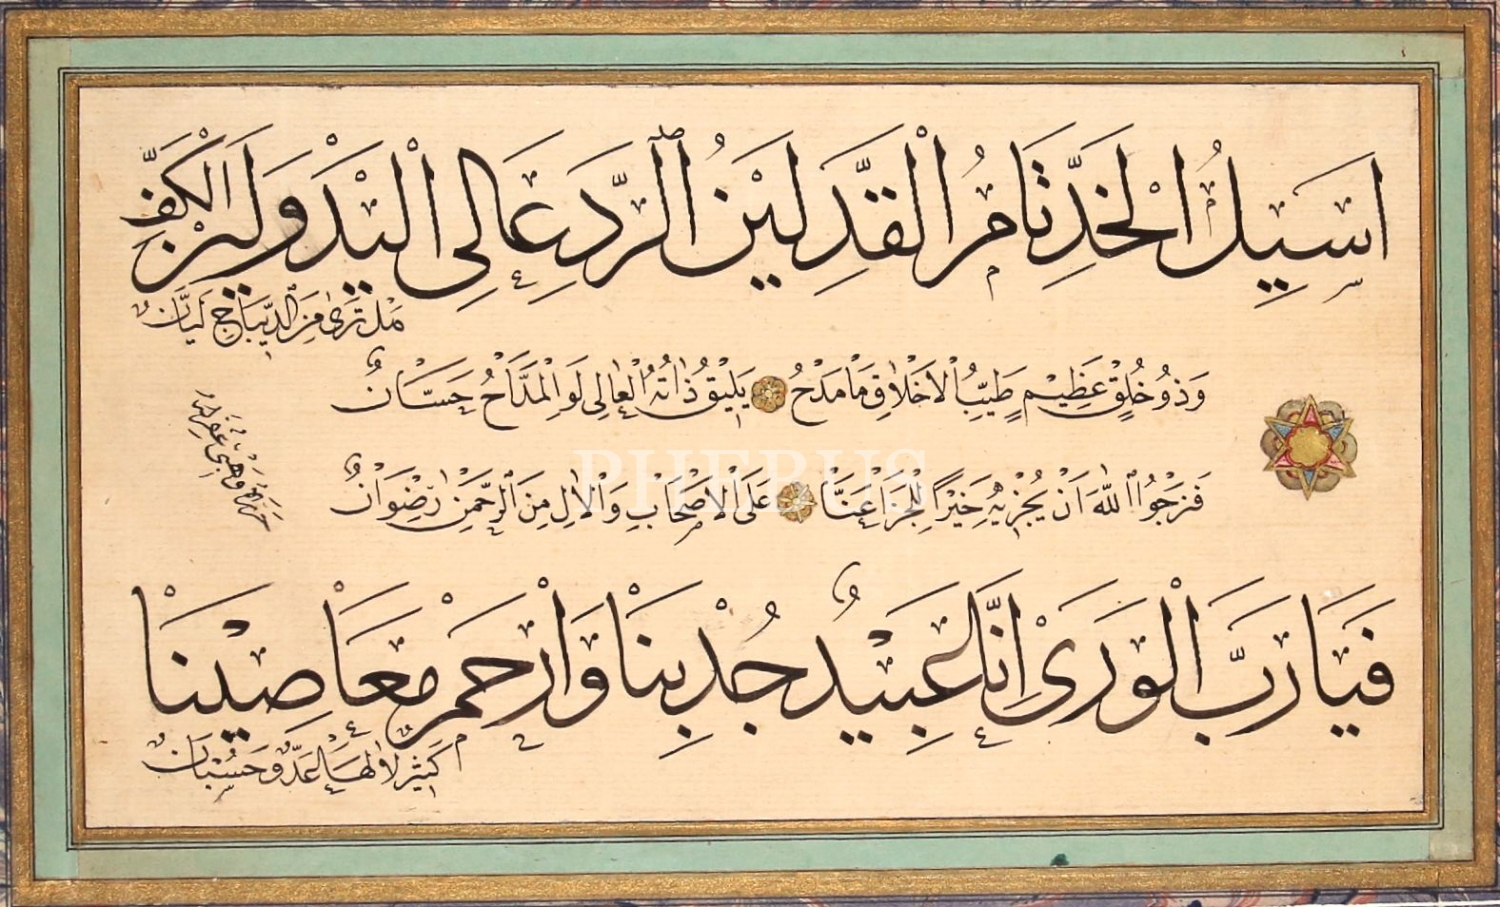 اَسيلُ الْخَدِّ تَامُ الْقَدِّ لَيِّنُ الرَّدِّ عَالِى الْيَدْ وَلَيِّنُ الْكَفِّ
مَلْ تَرَى مِنَ الدِّيبَاجِ لَيَّانٌ
وَذُو خُلْقٍ عَظِيمٍ طَيِّبُ الْاَخْلَاقِ مَا مَدْحُ يَلِيقُ ذَاتُهُ الْعَالِى لَوِ الْمَدَّاحُ حَسَّانٌ
فَنَرْجُوا اللهَ اَنْ يُجْزِيهِ خَيْرًا لِلْجَزَا عَنَّا عَلَى الْاَصْحَابِ وَالْاٰلِ مِنَ الرَّحْمٰنِ رِضْوَانٌ
وهبى غفر له
فَيَا رَبَّ الْوَرَى اِنَّا عَبِيدٌ جُدْ بِنَا وَارْحَمْ مَعَاصِينَا
كَثِيرٌ لَا لَهَا عَدٌّ وَحُسْبَانٌ
PHEBUS